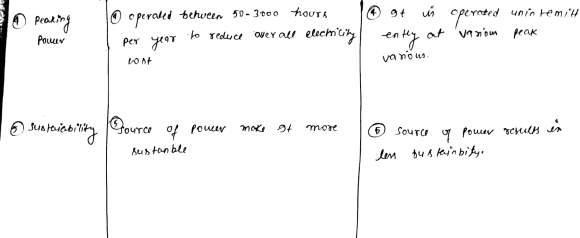 ④ peaking
Power
④ operated between 50-3000 hours
per year to reduce over all electricity
cost
④ It is operated unintemitt
ently at various peak
various.
⑤ sustaiability
⑤ source of power make It more
sustanble
⑤ source of power results in
less sustainbity.